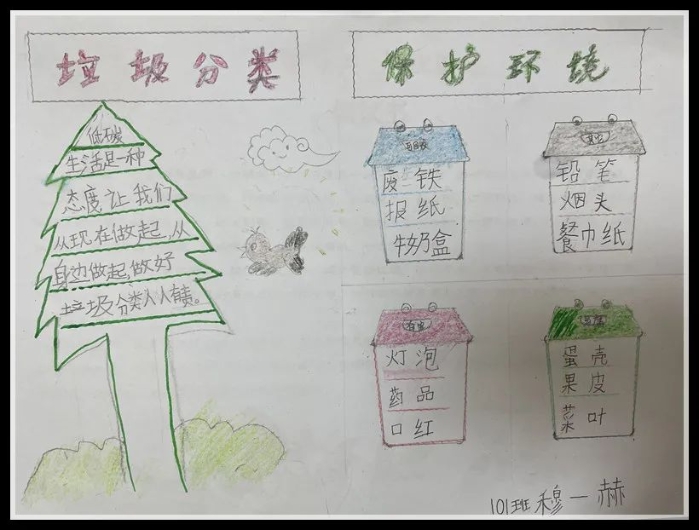 垃圾分类
保护环境
低碳
生活是一种
态度让我们
从现在做起,从
身边做起,做好
垃圾分类人人有责。
可回收
废铁
报纸
牛奶盒
其它
铅笔
烟头
餐巾纸
有害
灯泡
药品
口红
蛋壳
果皮
菜叶
101班 穆一赫